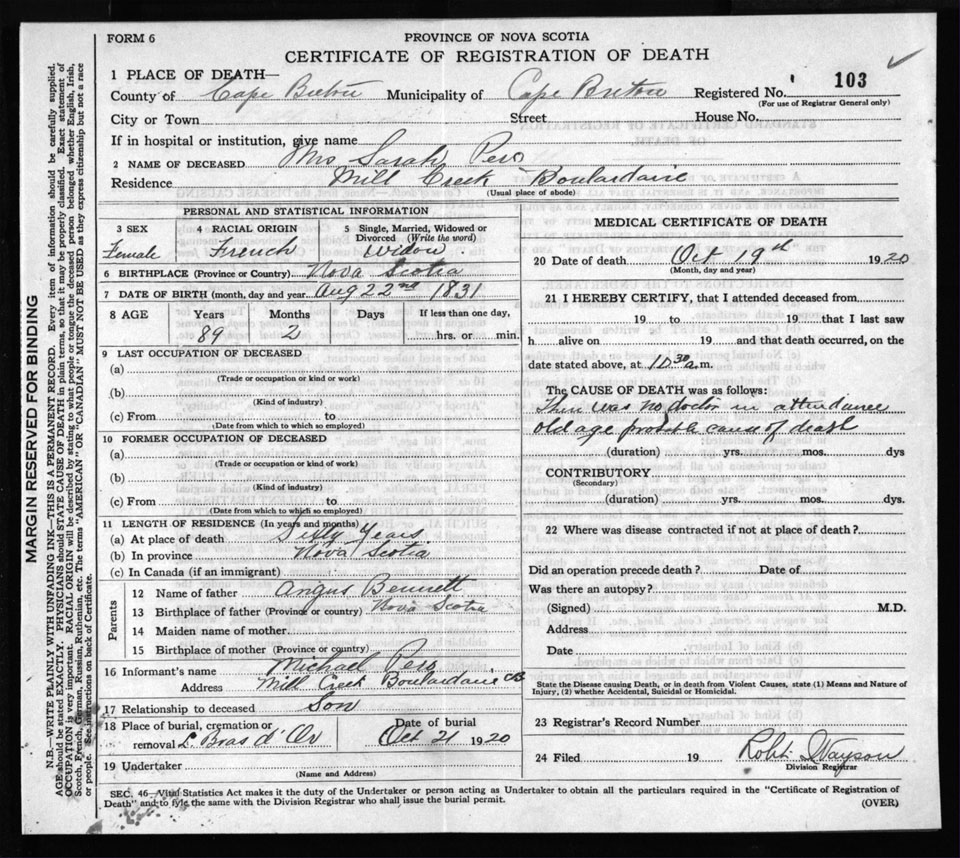 FORM 6
PROVINCE OF NOVA SCOTIA
CERTIFICATE OF REGISTRATION OF DEATH
1 PLACE OF DEATH—
County of Cape Breton Municipality of Cape Breton Registered No. 103
(For use of Registrar General only)
City or Town Street House No.
If in hospital or institution, give name
2 NAME OF DECEASED Mrs Sarah
Residence Mill Creek Boulardarie
(Usual place of abode)
PERSONAL AND STATISTICAL INFORMATION
3 SEX 4 RACIAL ORIGIN 5 Single, Married, Widowed or Divorced (Write the word)
Female French Widow
6 BIRTHPLACE (Province or Country) Nova Scotia
7 DATE OF BIRTH (month, day and year) Aug 22nd 1831
8 AGE Years Months Days If less than one day,
89 2 hrs. or min.
9 LAST OCCUPATION OF DECEASED
(a)
(Trade or occupation or kind of work)
(b)
(Kind of industry)
(c) From to
(Date from which to which so employed)
10 FORMER OCCUPATION OF DECEASED
(a)
(Trade or occupation or kind of work)
(b)
(Kind of industry)
(c) From to
(Date from which to which so employed)
11 LENGTH OF RESIDENCE (In years and months)
(a) At place of death Sixty Years
(b) In province Nova Scotia
(c) In Canada (if an immigrant)
Parents
12 Name of father Angus Bennett
13 Birthplace of father (Province or country) Nova Scotia
14 Maiden name of mother
15 Birthplace of mother (Province or country)
16 Informant's name Michael
Address Mill Creek Boulardarie CB
17 Relationship to deceased Son
18 Place of burial, cremation or removal L. Bras d'Or Date of burial Oct 21 1920
19 Undertaker
(Name and Address)
MEDICAL CERTIFICATE OF DEATH
20 Date of death Oct 19th 1920
(Month, day and year)
21 I HEREBY CERTIFY, that I attended deceased from
19 to 19 that I last saw
h alive on 19 and that death occurred, on the
date stated above, at 10 30 a.m.
The CAUSE OF DEATH was as follows:
There was no doctor in attendance
old age probable cause of death
(duration) yrs. mos. dys
CONTRIBUTORY
(Secondary)
(duration) yrs. mos. dys.
22 Where was disease contracted if not at place of death?
Did an operation precede death? Date of
Was there an autopsy?
(Signed) M.D.
Address
Date
State the Disease causing Death, or in death from Violent Causes, state (1) Means and Nature of
Injury, (2) whether Accidental, Suicidal or Homicidal.
23 Registrar's Record Number
24 Filed 19 Robt
Division Registrar
SEC. 46—Vital Statistics Act makes it the duty of the Undertaker or person acting as Undertaker to obtain all the particulars required in the "Certificate of Registration of
Death" and to file the same with the Division Registrar who shall issue the burial permit. (OVER)
MARGIN RESERVED FOR BINDING
N.B.—WRITE PLAINLY WITH UNFADING INK—THIS IS A PERMANENT RECORD. Every item of information should be carefully supplied.
AGE should be stated EXACTLY. PHYSICIANS should STATE CAUSE OF DEATH in plain terms, so that it may be properly classified. Exact statement of
OCCUPATION is very important. RACIAL ORIGIN will be described by stating to what people or tongue the deceased person belonged whether English, Irish,
Scotch, French, German, Russian, Ruthenian, etc. The terms "AMERICAN" OR "CANADIAN" MUST NOT BE USED as they express citizenship but not a race
or people. See instructions on back of Certificate.